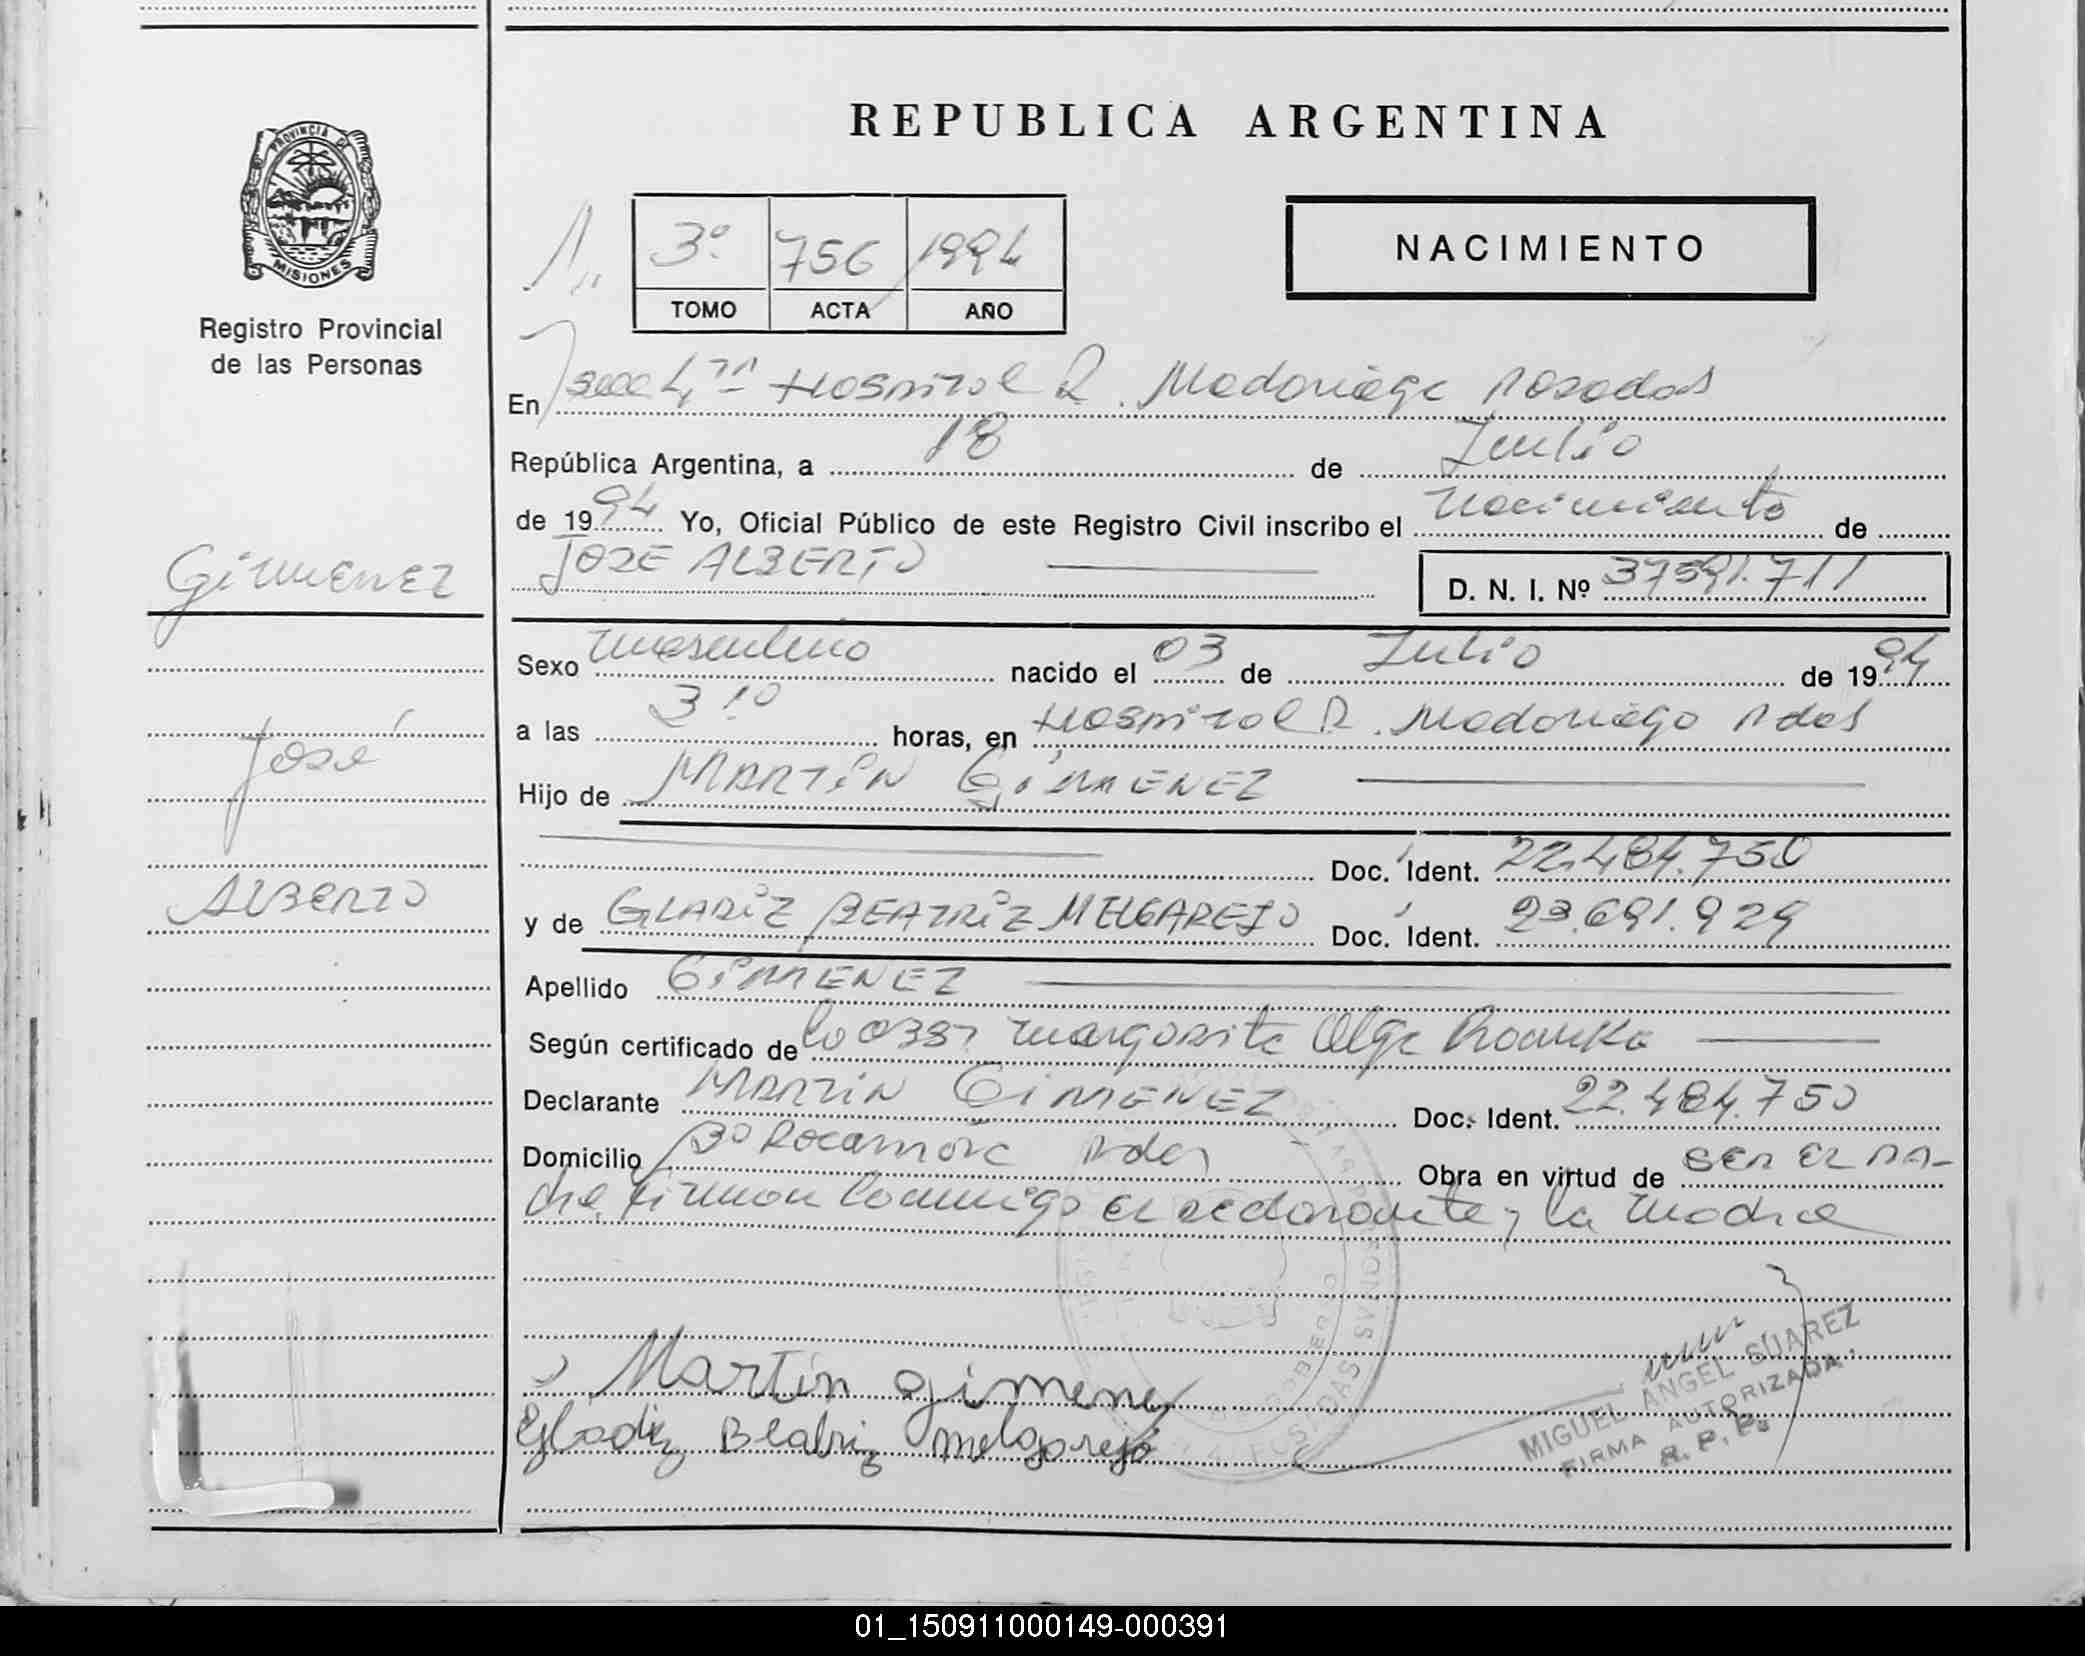 REPUBLICA ARGENTINA
PROVINCIA DE
MISIONES
Registro Provincial
de las Personas
3º 756 1994
TOMO ACTA AÑO
NACIMIENTO
En Hospital R. Madariaga Posadas
República Argentina, a 18 de Julio
de 1994 Yo, Oficial Público de este Registro Civil inscribo el nacimiento de
JOSE ALBERTO D. N. I. Nº 37591.711
Gimenez
José
Alberto
Sexo masculino nacido el 03 de Julio de 1994
a las 3:10 horas, en Hospital R. Madariaga Pdas
Hijo de MARTIN GIMENEZ
Doc. Ident. 22.484.750
y de GLADIZ BEATRIZ MELGAREJO Doc. Ident. 23.691.929
Apellido GIMENEZ
Según certificado de Margarita Olga
Declarante MARTIN GIMENEZ Doc. Ident. 22.484.750
Domicilio Bº Rocamora Pdas Obra en virtud de SER EL PA-
dre, firman conmigo el declarante y la madre
Martín gimenez
Gladiz Beatriz melgarejo
MIGUEL ANGEL SUAREZ
FIRMA AUTORIZADA
R. P. Ps
01_150911000149-000391